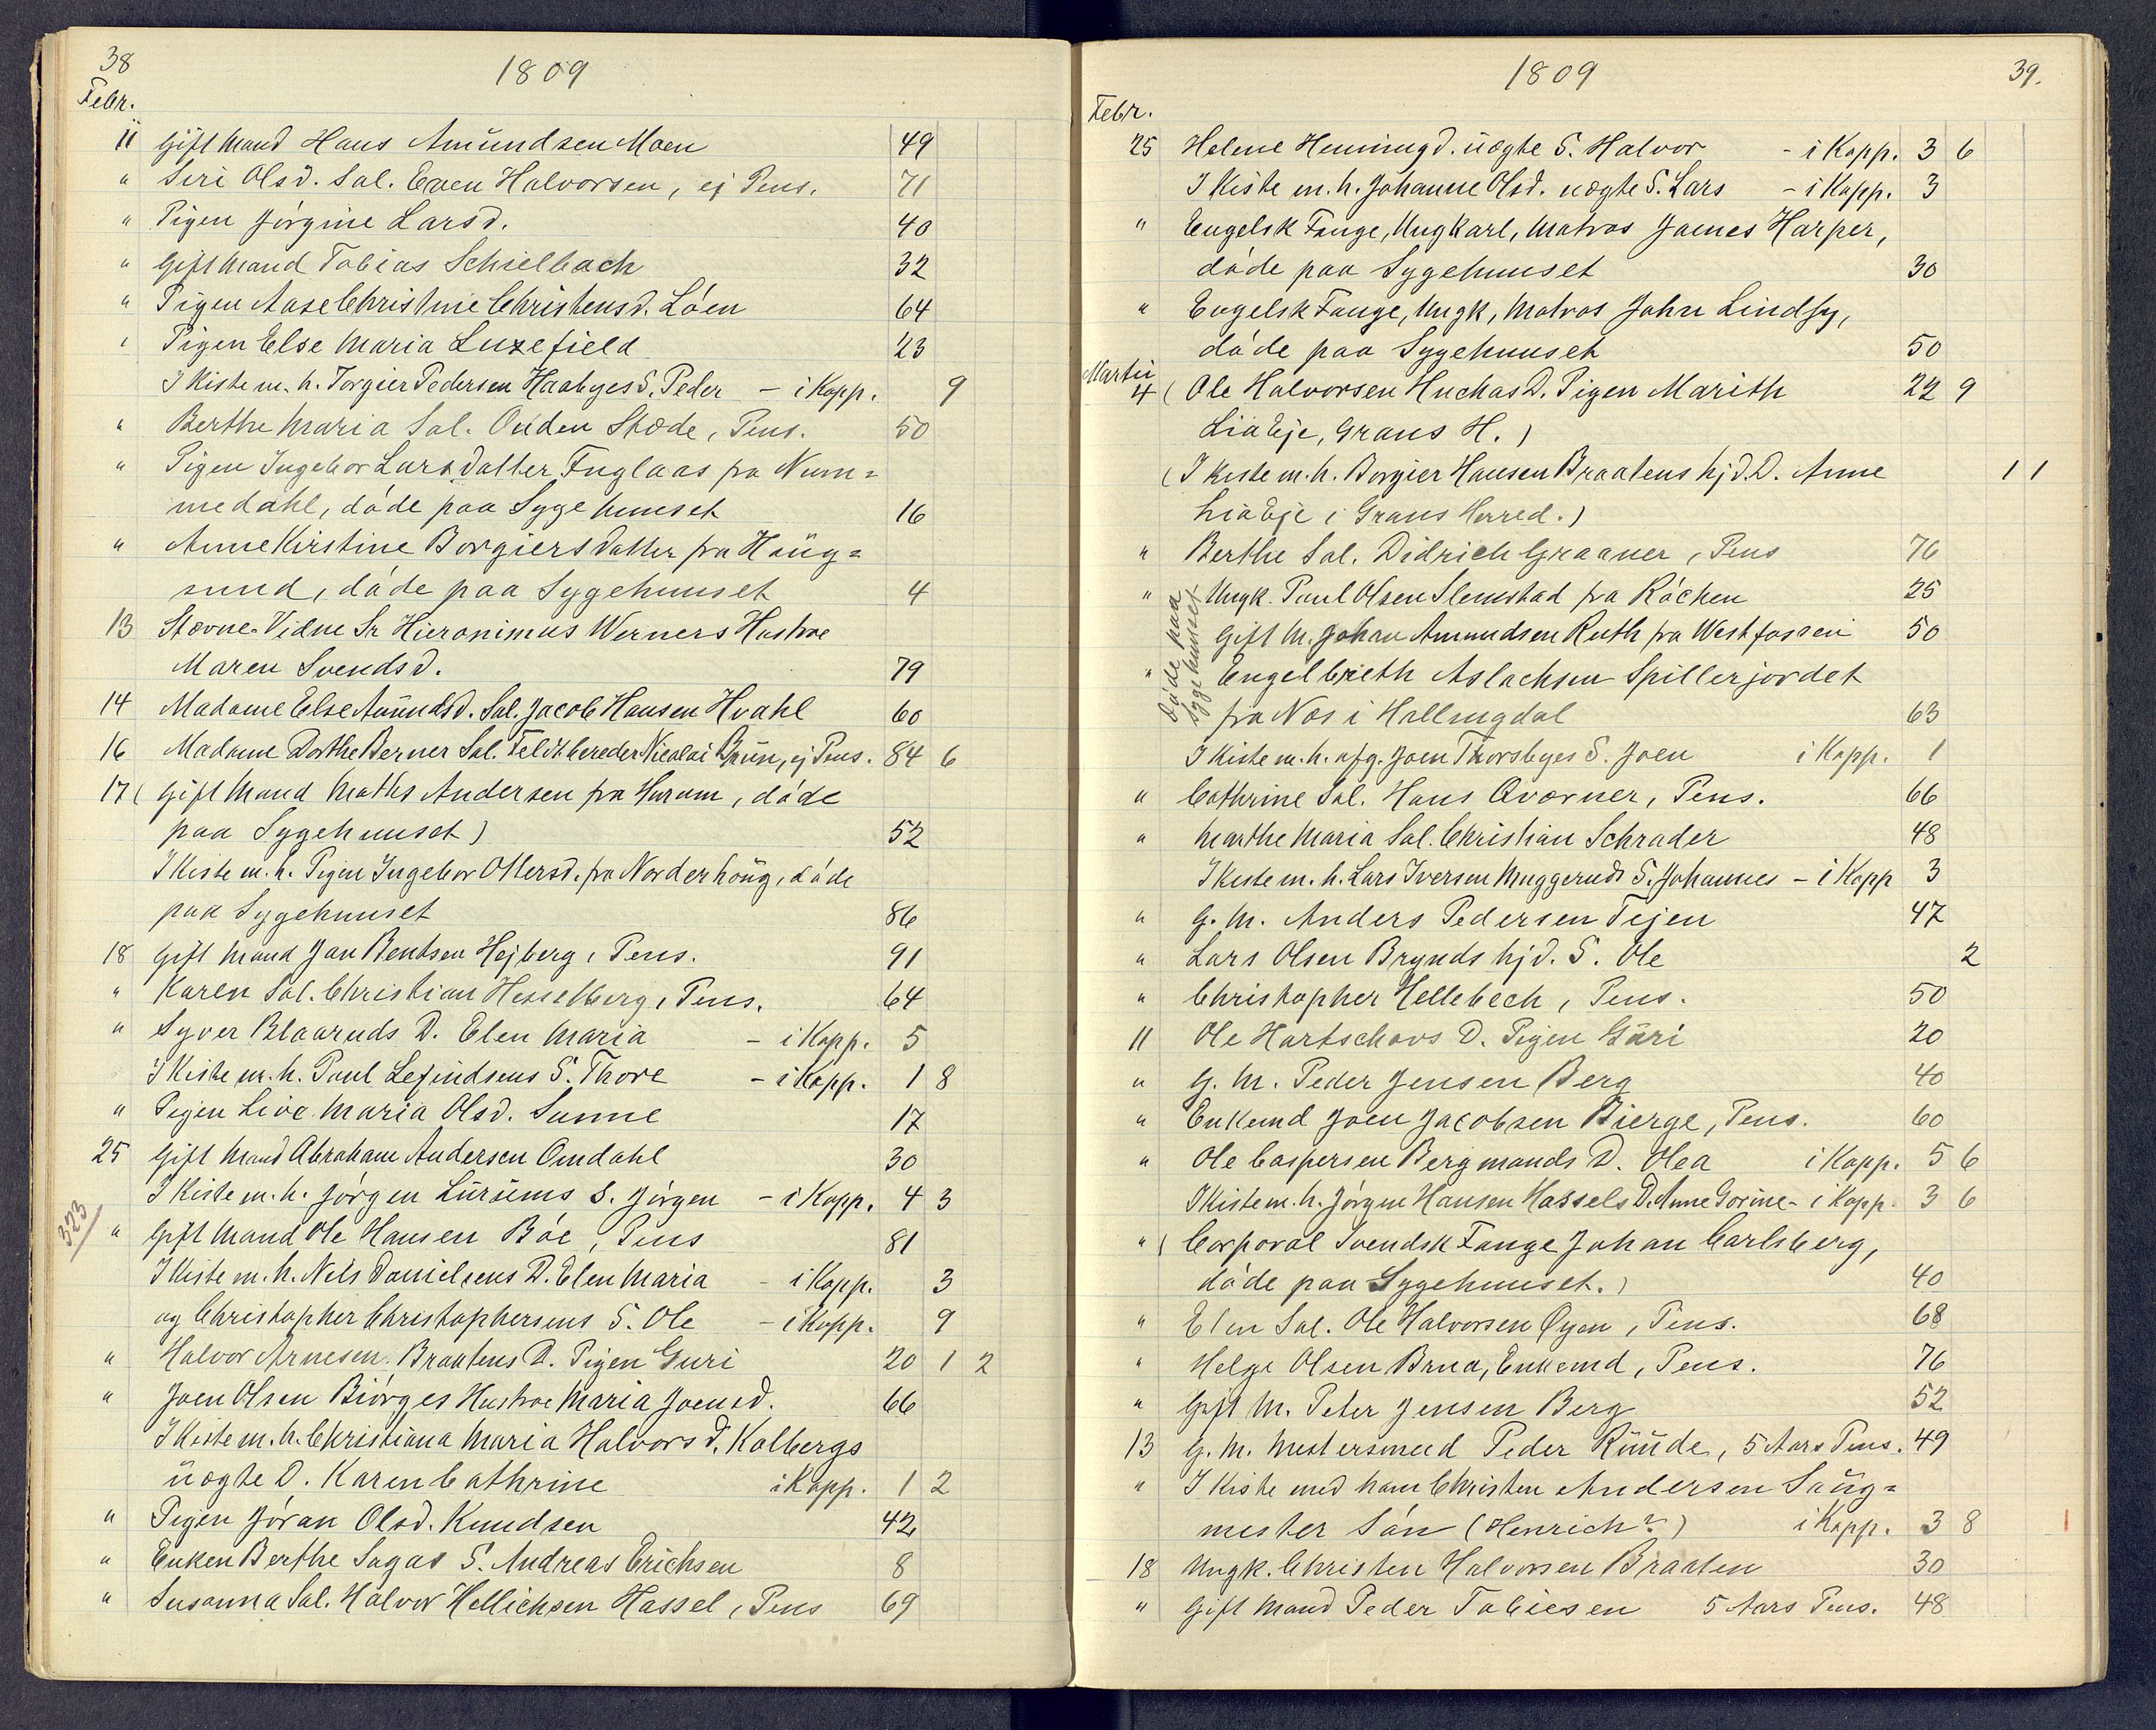 38
1809
Febr.
11 Gift Mand Hans Amŭndsen Moen 49
" Siri Olsd. Sal. Even Halvorsen, ej Pens. 71
" Pigen Jörgine Larsd. 40
" Gift Mand Tobias Schielbach 32
" Pigen Aase Christine Christensd. Löen 64
" Pigen Else Maria Luxefield 23
I Kiste m. h. Torgier Pedersen Haabyes S. Peder – i Kopp. 9
" Berthe Maria Sal. Ouden Stode, Pens. 50
" Pigen Ingebor Larsdatter Fuglaas fra Num=
medahl, döde paa Sygehuuset 16
" Anne Kirstine Borgiersdatter fra Haŭg=
sund, döde paa Sygehuuset 4
13 Stævne-Vidne Sr Hieronimus Werners Hustroe
Maren Svendsd. 79
14 Madame Else Amŭndsd. Sal. Jacob Hansen Hvahl 60
16 Madame Dorthe Berner Sal. Feldtbereder Nicolai Brŭn, ej Pens. 84 6
17 ( Gift Mand Mathis Andersen fra Hurum, döde
paa Sygehuuset) 52
I Kiste m. h. Pigen Ingebor Ottersd. fra Norderhoŭg, döde
paa Sygehuuset 86
18 Gift Mand Jan Bentsen Hejberg, Pens. 91
" Karen Sal. Christian Hesselberg, Pens. 64
" Syver Blaaruds D. Elen Maria – i Kopp. 5
I Kiste m. h. Poul Lefindsens S. Thore – i Kopp. 1 8
" Pigen Live Maria Olsd. Sunne 17
25 Gift Mand Abraham Andersen Omdahl 30
I Kiste m. h. Jörgen Lŭrŭms S. Jörgen – i Kopp. 4 3
323
" Gift Mand Ole Hansen Böe, Pens 81
I Kiste m. h. Nels Danielsens D. Elen Maria – i Kopp. 3
og Christopher Christophersens S. Ole – i Kopp. 9
" Halvor Arnesen Braatens D. Pigen Guri 20 1 2
" Joen Olsen Biörges Hustroe Maria Joensd. 66
I Kiste m. h. Christiana Maria Halvorsd. Kolbergs
ŭægte D. Karen Cathrine i Kopp. 1 2
" Pigen Jöran Olsd. Knudsen 42
" Enken Berthe Sagas S. Andreas Erichsen 8
" Susanna Sal. Halvor Hellichsen Hassel, Pens 69
1809
39.
Febr.
25 Helene Henningd. ŭægte S. Halvor – i Kopp. 3 6
I Kiste m. h. Johanne Olsd. uægte S. Lars – i Kopp. 3
" Engelsk Fange, Ungkarl, Matros James Harper,
döde paa Sygehuuset 30
" Engelsk Fange, Ungk, Matros John Lindsy,
döde paa Sygehuuset 50
Martii
4 ( Ole Halvorsen Huchas D. Pigen Marith 22 9
Lia Eje, Grans H. )
( I Kiste m. h. Borgier Hansen Braatens hjd. D. Anne 1 1
Lia Eje i Grans Herred. )
" Berthe Sal. Didrich Graaner, Pens 76
döde paa Sygehuuset
" Ungk. Poul Olsen Slemstad fra Röcken 25
Gift M. Johan Amundsen Ruth fra Westfossen 50
" Engelbrieth Aslachsen Spillerjordet
fra Næs i Hallingdal 63
I Kiste m. h. afg. Joen Thorsbyes S. Joen i Kopp. 1
" Cathrine Sal. Hans Qværner, Pens. 66
" Marthe Maria Sal. Christian Schrader 48
I Kiste m. h. Lars Iversen Muggeruds S. Johannes – i Kopp 3
" G. M. Anders Pedersen Tejen 47
" Lars Olsen Brynds hjd. S. Ole 2
" Christopher Hellebech, Pens. 50
11 Ole Hartschovs D. Pigen Gŭri 20
" G. M. Peder Jensen Berg 40
" Enkemd Joen Jacobsen Bierge, Pens. 60
" Ole Caspersen Bergmands D. Olea i Kopp. 5 6
I Kiste m. h. Jörgen Hansen Hassels D. Anne Gorine – i Kopp. 3 6
" ( Corporal Svendsk Fange Johan Carlsberg,
döde paa Sygehuuset. ) 40
" Elen Sal. Ole Halvorsen Øyen, Pens. 68
" Helge Olsen Brua, Enkemd, Pens. 76
" Gift M. Peter Jensen Berg 52
13 G. M. Mestersmed Peder Rŭŭde, 5 Aars Pens. 49
" I Kiste med ham Christen Andersen Saŭg=
mester Sön (Henrich?) i Kopp. 3 8
18 Ungk. Christen Halvorsen Braaten 30
" Gift Mand Peder Tobiesen 5 Aars Pens. 48